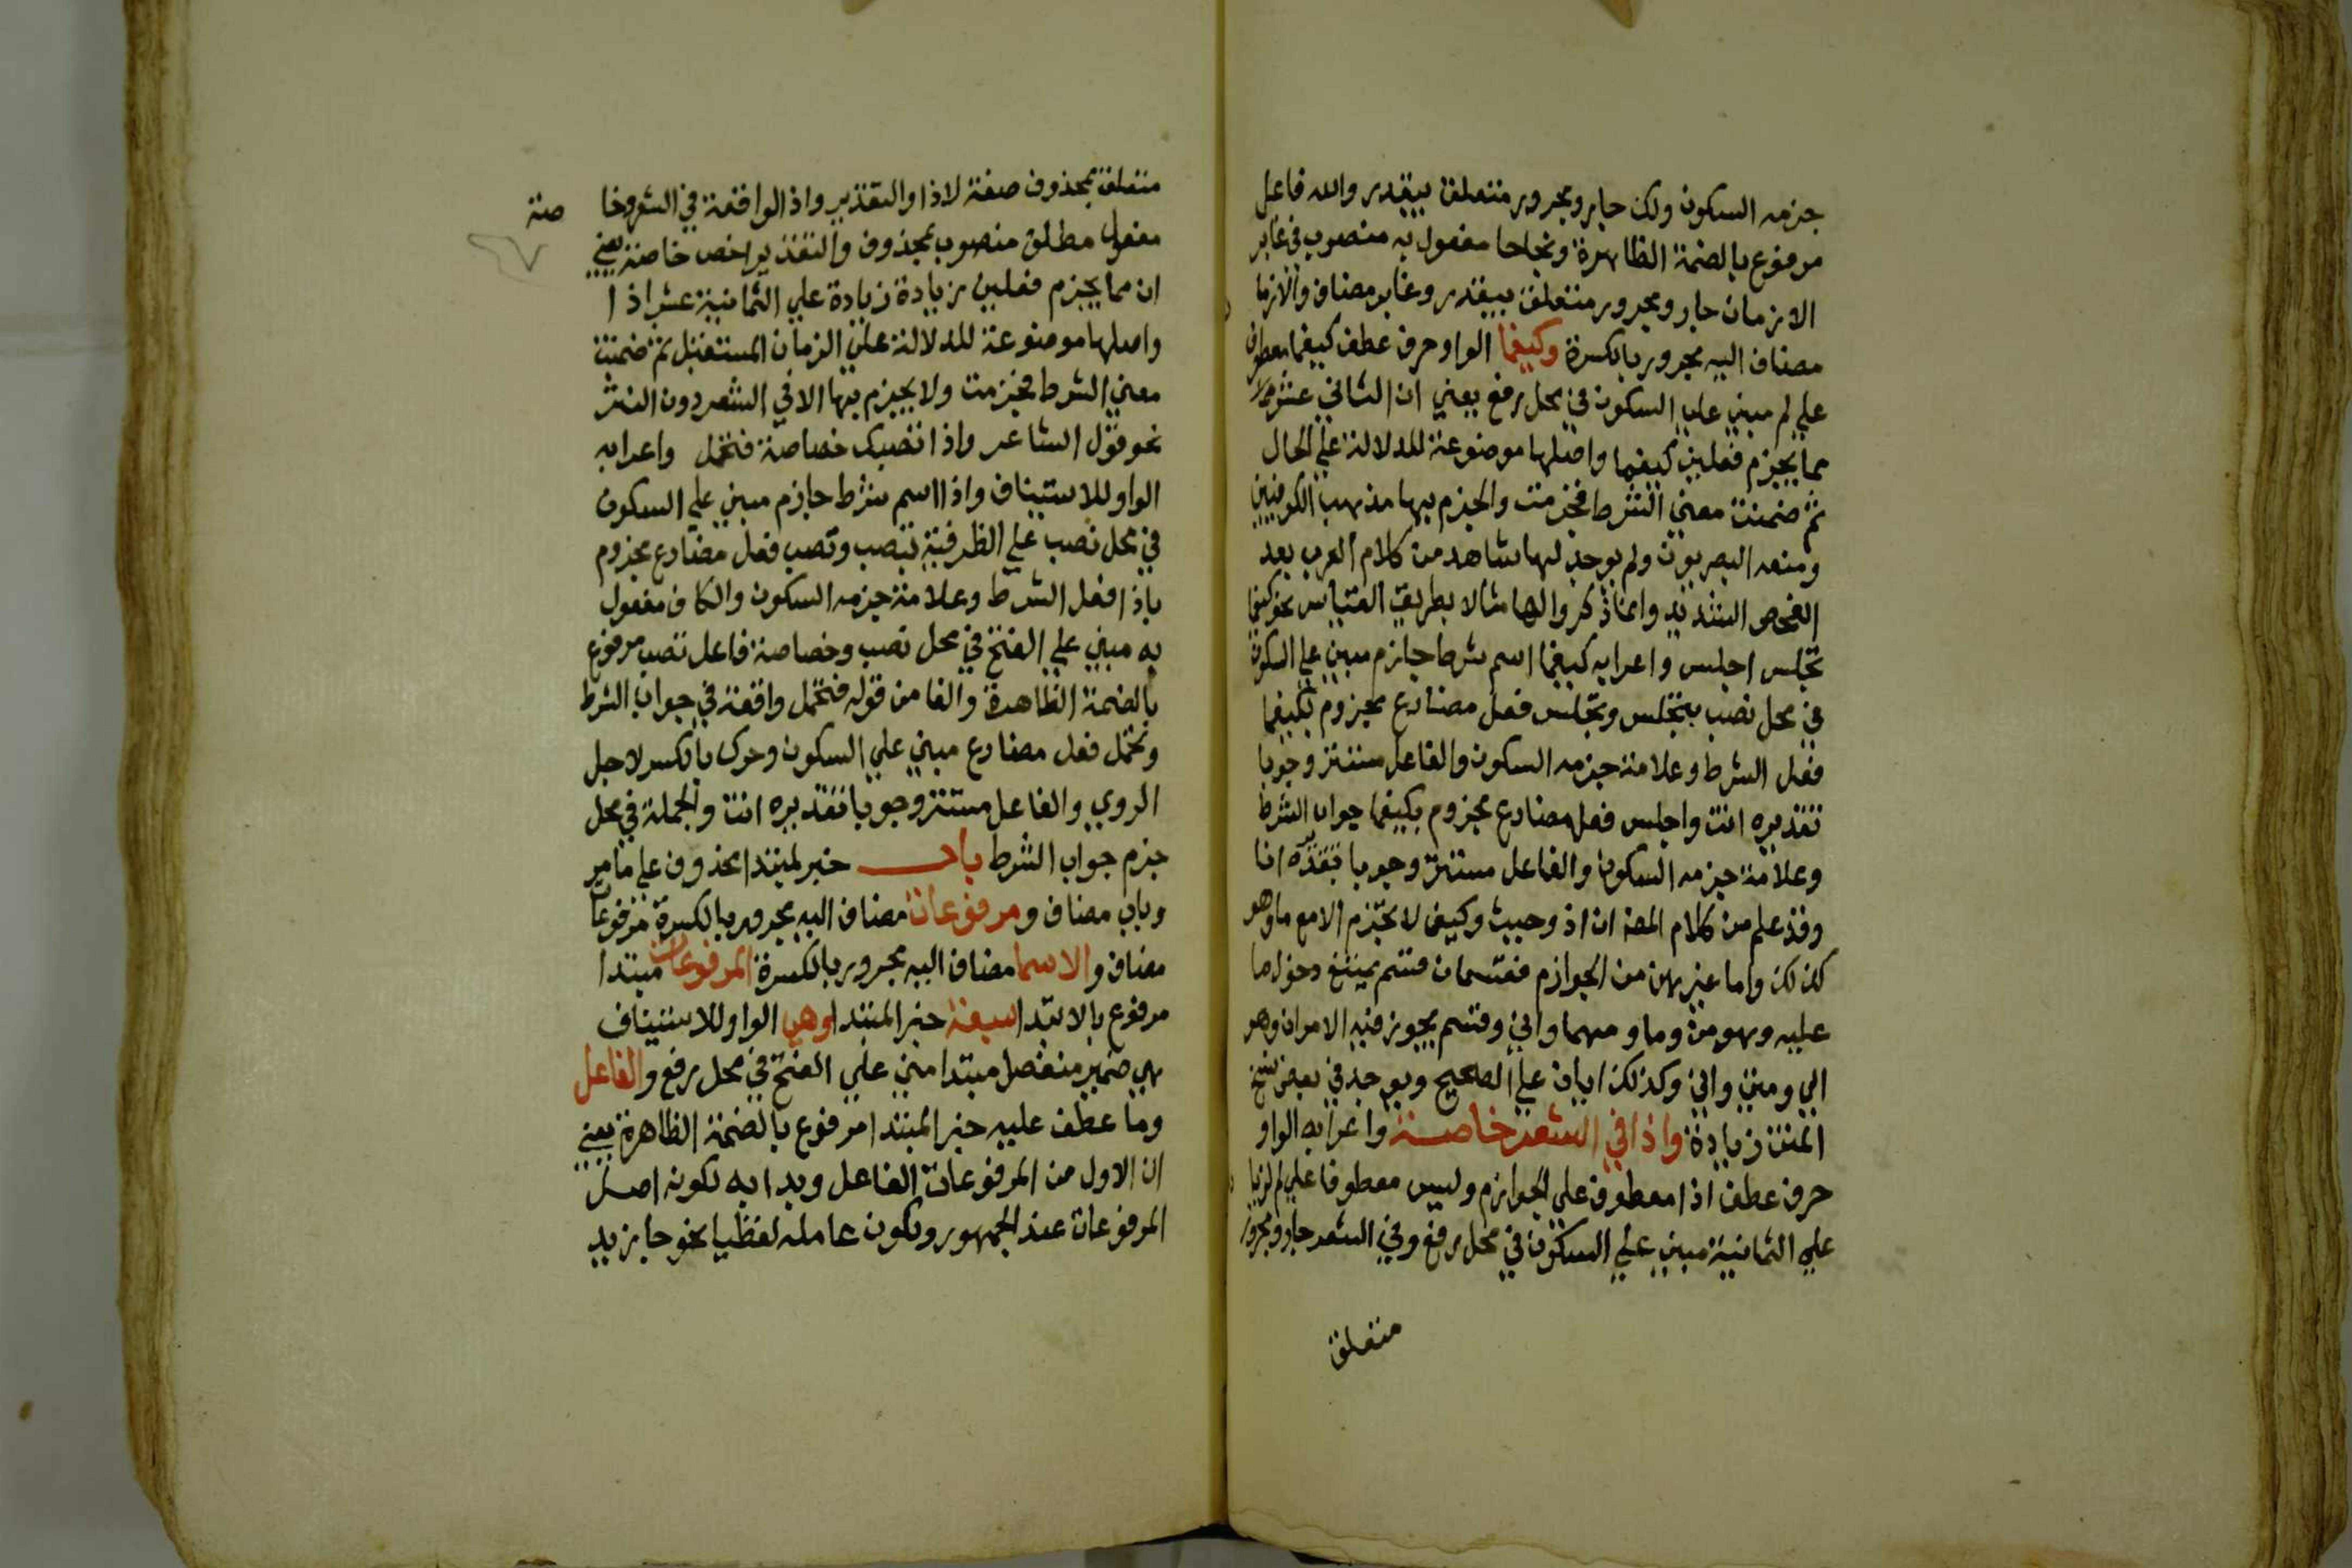 جزمه السكون ولك جار ومجرور متعلق بيقدر والله فاعل
مرفوع بالضمة الظاهرة ونجاحا مفعول به منصوب في غابر
الازمان جار ومجرور متعلق بيقدر وغابر مضاف والازما
مضاف اليه مجرور بالكسرة وكيفما الواو حرف عطف كيفما معطوف
علي لم مبني علي السكون في محل رفع يعني ان الثاني عشر
مما يجزم فعلين كيفما واصلها موضوعة للدلالة علي الحال
ثم ضمنت معني الشرط فجزمت والجزم بها مذهب الكوفيين
ومنعه البصريون ولم يوجد لها شاهد من كلام العرب بعد
الفحص الشديد وانما ذكروا لها مثالا بطريق القياس نحو كيفما
تجلس اجلس واعرابه كيفما اسم شرط جازم مبني علي السكون
في محل نصب بتجلس وتجلس فعل مضارع مجزوم بكيفما
فعل الشرط وعلامة جزمه السكون والفاعل مستتر وجوبا
تقديره انت واجلس فعل مضارع مجزوم بكيفما جواب الشرط
وعلامة جزمه السكون والفاعل مستتر وجوبا تقديره انا
وقد علم من كلام المص ان اذ وحيث وكيف لا تجزم الا مع ما وهو
كذلك واما غيرهن من الجوازم فقسمان قسم يمتنع دخول ما
عليه وهو من وما ومهما واني وقسم يجوز فيه الامران وهو
اي ومتي واين وكذلك ايان علي الصحيح ويوجد في بعض نسخ
المتن زيادة واذا في الشعر خاصة واعرابه الواو
حرف عطف اذا معطوف علي الجوازم وليس معطوفا علي لم لزيا
علي الثمانية مبني علي السكون في محل رفع وفي الشعر جار ومجرور
متعلق
متعلق بمحذوف صفة لاذا والتقدير واذا الواقعة في الشعر وخا صة
مفعول مطلق منصوب بمحذوف والتقدير اخص خاصة يعني
ان مما يجزم فعلين زيادة زيادة علي الثمانية عشر اذا
واصلها موضوعة للدلالة علي الزمان المستقبل ثم ضمنت
معني الشرط فجزمت ولا يجزم بها الا في الشعر دون النثر
نحو قول الشاعر واذا تصبك خصاصة فتحمل واعرابه
الواو للاستيناف واذا اسم شرط جازم مبني علي السكون
في محل نصب علي الظرفية بتصب وتصب فعل مضارع مجزوم
باذا فعل الشرط وعلامة جزمه السكون والكاف مفعول
به مبني علي الفتح في محل نصب وخصاصة فاعل تصب مرفوع
بالضمة الظاهرة والفا من قوله فتحمل واقعة في جواب الشرط
وتحمل فعل مضارع مبني علي السكون وحرك بالكسر لاجل
الروي والفاعل مستتر وجوبا تقديره انت والجملة في محل
جزم جواب الشرط باب خبر لمبتدا محذوف علي ما مر
وباب مضاف ومرفوعات مضاف اليه مجرور بالكسرة مرفوعات
مضاف والاسما مضاف اليه مجرور بالكسرة المرفوعات مبتدا
مرفوع بالابتدا سبعة خبر المبتدا وهي الواو للاستيناف
هي ضمير منفصل مبتدا مبني علي الفتح في محل رفع والفاعل
وما عطف عليه خبر المبتدا مرفوع بالضمة الظاهرة يعني
ان الاول من المرفوعات الفاعل وبدا به لكونه اصل
المرفوعات عند الجمهور ولكون عامله لفظيا نحو جا زيد